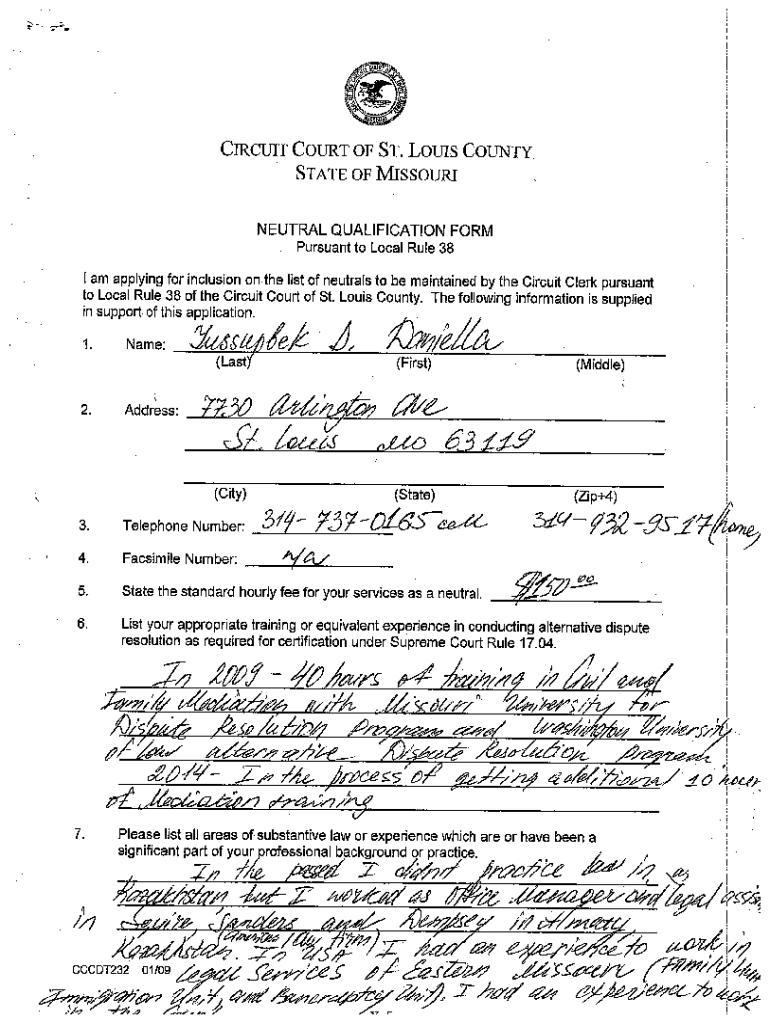 CIRCUIT COURT OF ST. LOUIS COUNTY
STATE OF MISSOURI
NEUTRAL QUALIFICATION FORM
Pursuant to Local Rule 38
I am applying for inclusion on the list of neutrals to be maintained by the Circuit Clerk pursuant
to Local Rule 38 of the Circuit Court of St. Louis County. The following information is supplied
in support of this application.
1. Name: Yussupbek D. Daniella
(Last) (First) (Middle)
2. Address: 7730 Arlington Ave
St. Louis MO 63119
(City) (State) (Zip+4)
3. Telephone Number: 314-737-0165 cell 314-932-9517 (home)
4. Facsimile Number: n/a
5. State the standard hourly fee for your services as a neutral. $150.00
6. List your appropriate training or equivalent experience in conducting alternative dispute
resolution as required for certification under Supreme Court Rule 17.04.
In 2009 - 40 hours of training in Civil and
Family Mediation with Missouri University for
Dispute Resolution Program and Washington University
of law alternative Dispute Resolution program
2014 - In the process of getting additional 10 hour
of Mediation training
7. Please list all areas of substantive law or experience which are or have been a
significant part of your professional background or practice.
In the I didnt practice law in
Kazakhstan but I worked as Office Manager and legal assis
in Squire Sanders and Dempsey in Almaty
Kazakhstan. (American Law Firm)
In USA I had an experience to work in
CCCDT232 01/09 Legal Services of Eastern Missouri (Family Law
Immigration Unit, and Bankruptcy Unit). I had an experience to work
in the